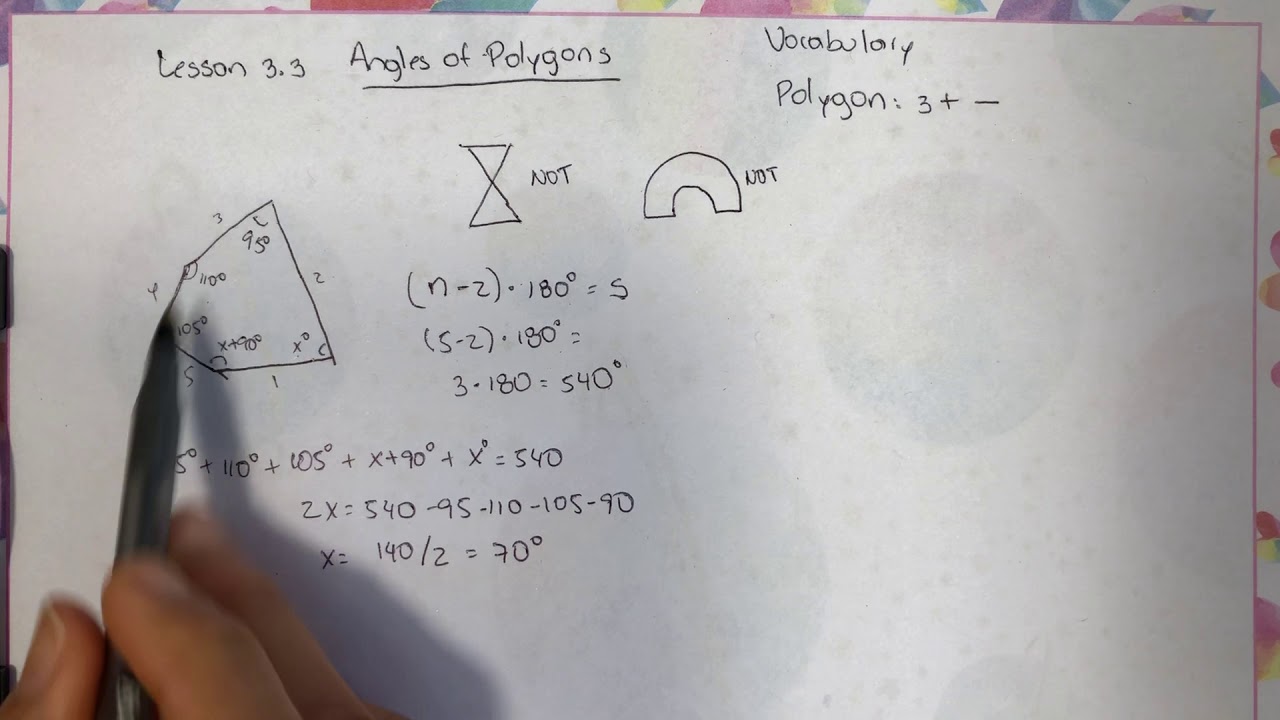 Lesson 3.3 Angles of Polygons
Vocabulary
Polygon: 3 + —
NOT
NOT
3
95°
110°
4
2
105°
x+90°
x°
5
1
(n-2)·180° = S
(5-2)·180° =
3·180 = 540°
5° + 110° + 105° + x+90° + x° = 540
2x = 540 -95-110-105-90
x = 140/2 = 70°